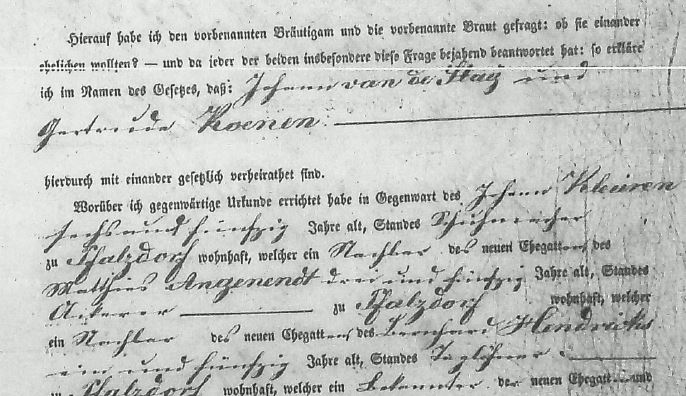 Hierauf habe ich den vorbenannten Bräutigam und die vorbenannte Braut gefragt: ob sie einander
ehelichen wollten? — und da jeder der beiden insbesondere diese Frage bejahend beantwortet hat: so erkläre
ich im Namen des Gesetzes, daß: Johann van de Flag und
Gertrude Koenen
hierdurch mit einander gesetzlich verheirathet sind.
Worüber ich gegenwärtige Urkunde errichtet habe in Gegenwart des Johann Veleuren
sechs und fünfzig Jahre alt, Standes Schuhmacher
zu Pfalzdorf wohnhaft, welcher ein Nachbar des neuen Ehegatten des
Matthias Angenendt drei und fünfzig Jahre alt, Standes
Ackerer zu Pfalzdorf wohnhaft, welcher
ein Nachbar des neuen Ehegatten des Bernhard Hendricks
ein und fünfzig Jahre alt, Standes Taglöhner
zu Pfalzdorf wohnhaft, welcher ein Bekannter der neuen Ehegatten und